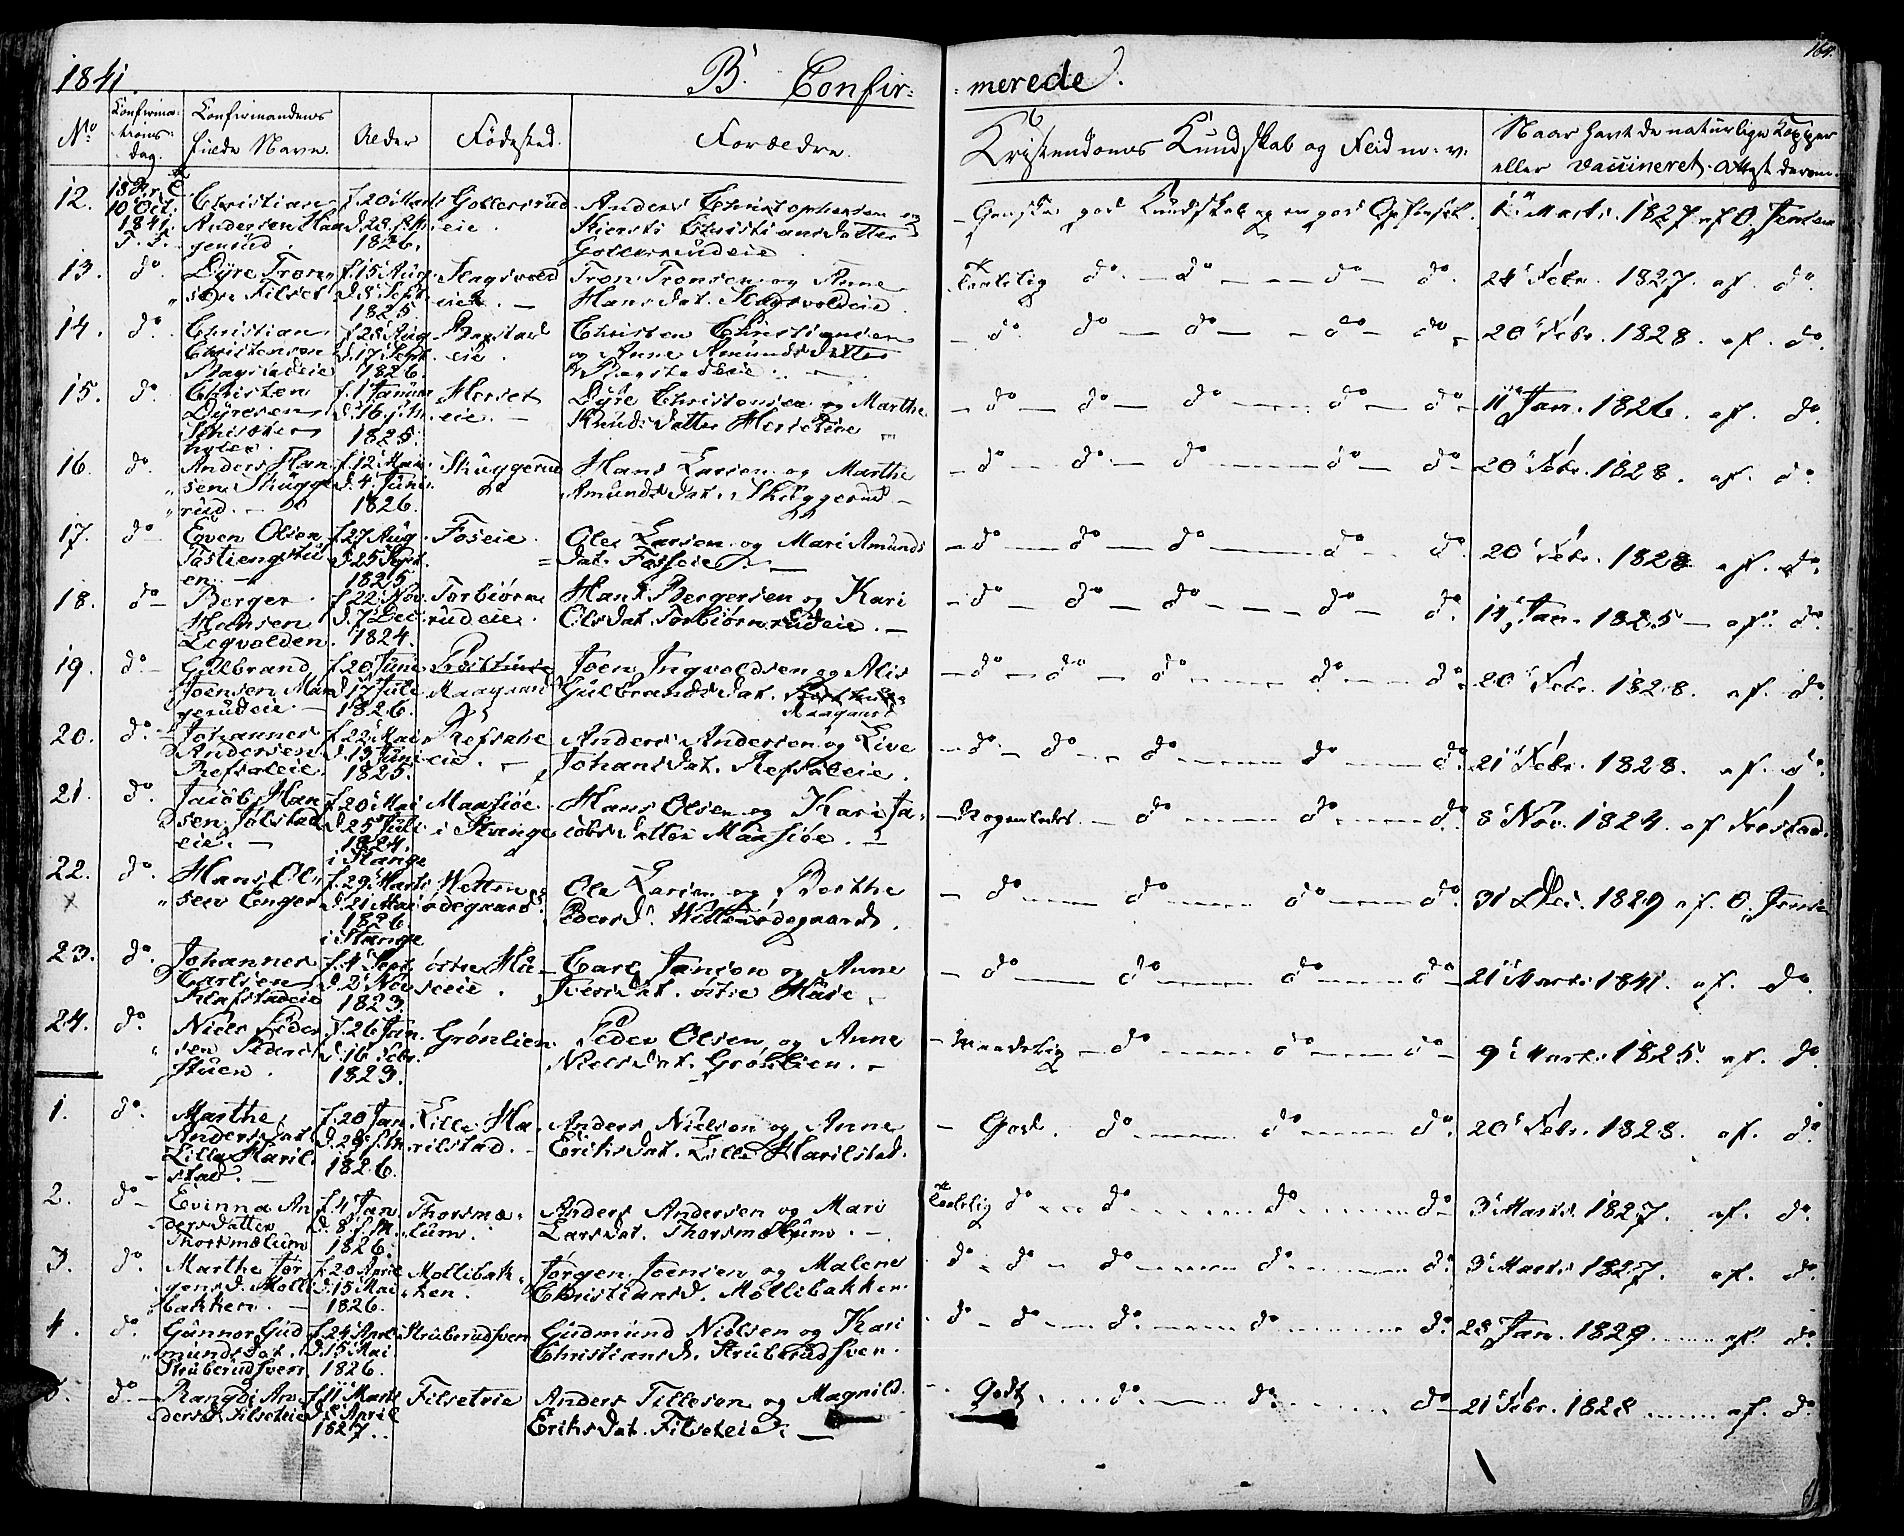 1841.
B. Confir=
=merede.
164.
No
Confirma-
tions-
dag.
Confirmandens
fulde Navn.
Alder
Fødested.
Forældre.
Kristendoms Kundskab og Flid m. v.
Naar havt de naturlige Kopper
eller vaccineret. Attest derom.
12.
10 Oct.
1841.
Christian
Andersen
f. 20 Marts
1826.
eie.
Anders Christophersen og
Kiersti Christiansdatter
Ganske god Kundskab og en god Opførsel.
Marts. 1827. af O. Jensen
13.
do.
f. 15 Aug
d. 8 Sept
1825
Tron Tronsen og Anne
Hansdat.
Taalelig do. — do — — do do.
Febr. 1827. af. do.
14.
do.
Christian
Christensen
Bagstadeie
f. 28 Aug
d. 17 Sept.
1826.
Bagstad
eie.
Christen Christiansen
og Anne Amundsdatter
Bagstadeie.
— do do — do — — do — do
20 Febr. 1828. af. do.
15.
do.
Christen
Dyresen
1825.
Herset
eie. —
Dyre Christensen og Marthe
Knudsdatter Herseteie
— do — do — do — do — do
11 Jan. 1826. af. do.
16.
do.
Anders Han
sen Skugge
rud. —
f. 12 Mai
d. 4 Juni.
1826.
Skuggerud
Hans Larsen og Marthe
Amundsdat. Skuggerud —
— do — do — do — do — do
20 Febr. 1828. af. do
17.
do
Even Olsen
en. —
f. 27 Aug
d. 25 Sept.
1825.
Foseie.
Ole Larsen og Mari Amunds
dat. Fosseie. —
— do — do — do — do — do.
20 Febr. 1828 af. do.
18.
do —
Berger
Hansen
f. 22 Nov.
d. 7 Dec.
1824.
Torbiørn
rudeie.
Hans Bergersen og Kari
Olsdat. Torbiørnrudeie. —
— do — do — do — do — do.
14 Jan. 1825 — af. do.
19.
do —
Gulbrand
Joensen
f. 20 Juni
d. 17 Juli
1826.
Joen Ingvoldsen og Alis
Gulbrandsdat.
— do — do — do — do — do.
20 Febr. 1828. af. do.
20.
do.
Johannes
Andersen
Refsaleie
f. 22 Mai
d. 13 Juni
1825.
Refsale
eie. —
Anders Andersen og Live
Johansdat. Refsaleie.
— do — do — do — do — do.
21 Febr. 1828. af. do.
21.
do.
Jacob Han
sen Jølstad
eie. —
f. 20 Mai
d. 25 Juli
1824.
i Stange
Maasiøe
i Stange
Hans Olsen og Kari Ja-
cobsdatter Maasiøe. —
— Nogenledes — do — do — do.
8 Nov. 1824. af Frøstad.
22.
do.
Hans Ol
sen Enger
f. 29 Marts
d. 21 Mai
1826
i Stange
ødegaard
Ole Larsen og Berthe
Pedersd.
— do — do — do — do.
31 Dec. 1829 af. O. Jense
23.
do.
Johannes
Carlsen
f. 4 Sept
d. 2 Nov
1823.
østre Hu-
seie.
Carl Jansen og Anne
Iversdat. østre Huse —
— do — do — do — do
21 Marts 1841. af. do.
24.
do.
Niels Peder
sen Peders
stuen.
f. 26 Jan.
d. 16 Febr.
1823.
Grønlien
Peder Olsen og Anne
Nielsdat. Grønlien. —
— Maadelig — do — do — do —
9 Marts 1825. af. do
1.
do.
Marthe
Andersdat
Lille Haril
stad. —
f. 20 Jan
1826.
Lille Ha-
rilstad. —
Anders Nielsen og Anne
Eriksdat. Lille Harilstad.
— God. do — do — do.
20 Febr. 1828. af. do.
2.
do —
Evinna An
dersdatter
Thorsmælum
f. 4 Jan
1826.
Thorsmæ-
lum.
Anders Andersen og Mari
Larsdat. Thorsmælum. —
Taalelig do — do — do — do
3 Marts 1827. af. do.
3.
do.
Marthe Jør
gensd. Molli
bakken. —
f. 20 April
d. 15 Mai
1826.
Mollibak-
ken.
Jørgen Joensen og Malene
Christiansd. Møllibakken.
do — do — do — do — do.
3 Marts 1827. af. do.
4.
do.
Gunnor Gud
mundsdat.
Struberudsven
f. 24 April
d. 15 Mai
1826.
Struberudsven
Gudmund Nielsen og Kari
Christiansd. Struberudsven.
do — do — do. do — do.
28 Jan. 1829. — af. do.
5.
do —
Rangdi An
dersd. Filseteie
f. 11 Marts
d. 8 April
1827.
Filseteie
Anders Tillesen og Magnild
Eriksdat. Filseteie. —
Godt do. — do. — do
21 Febr. 1828 — af. do.